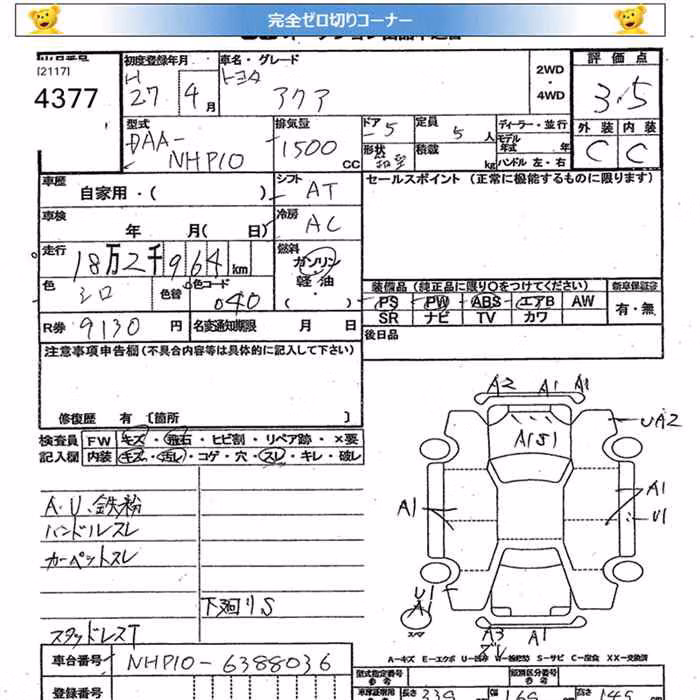 完全ゼロ切りコーナー
[2117]
4377
初度登録年月
H
27 4月
車名・グレード
トヨタ
アクア
2WD
・
4WD
評価点
3.5
外装 内装
C C
型式
DAA-
NHP10
排気量
1500
CC
ドア
5
定員
5
人
ディーラー・並行
モデル
年式
年
形状
積載
kg
ハンドル 左・右
車歴
自家用・( )
シフト
AT
セールスポイント (正常に機能するものに限ります)
車検
年 月( 日)
冷房
AC
走行
18万2千964
km
燃料
ガソリン
軽油
( ・ )
色
シロ
色替
色コード
040
装備品 (純正品に限り○をつけてください)
新車保証書
PS PW ABS エアB AW
SR ナビ TV カワ
有・無
R券
9130
円
名変通知期限
月 日
後日品
注意事項申告欄(不具合内容等は具体的に記入して下さい)
修復歴 有 〔箇所 〕
検査員
記入欄
FW キズ・飛石・ヒビ割・リペア跡・×要
内装 キズ・汚レ・コゲ・穴・スレ・キレ・破レ
A・U、鉄粉
ハンドルスレ
カーペットスレ
下廻りS
スタッドレスT
A2 A1 A1
UA2
A1
A1
U1
U1
A1
スペア
A3
A1
A=キズ E=エクボ U=凹み W=補修跡 S=サビ C=腐食 XX=交換済
車台番号
NHP10-6388036
登録番号
型式指定番号
参考
類別区分番号
参考
長さ
幅
高さ
145